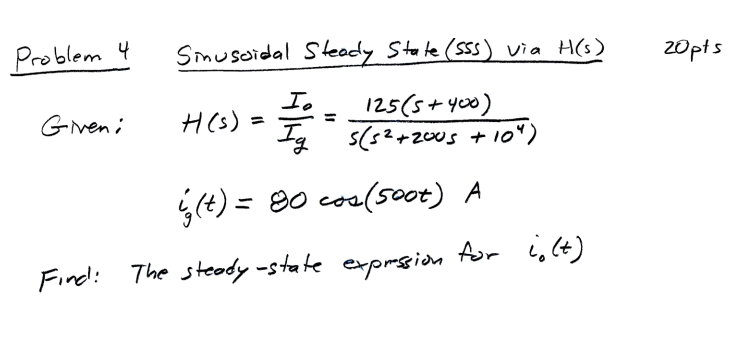 Problem 4 Sinusoidal Steady State (SSS) via H(s) 20pts
Given: H(s) = Io/Ig = 125(s+400)/s(s²+200s+10⁴)
ig(t) = 80 cos(500t) A
Find: The steady-state expression for io(t)